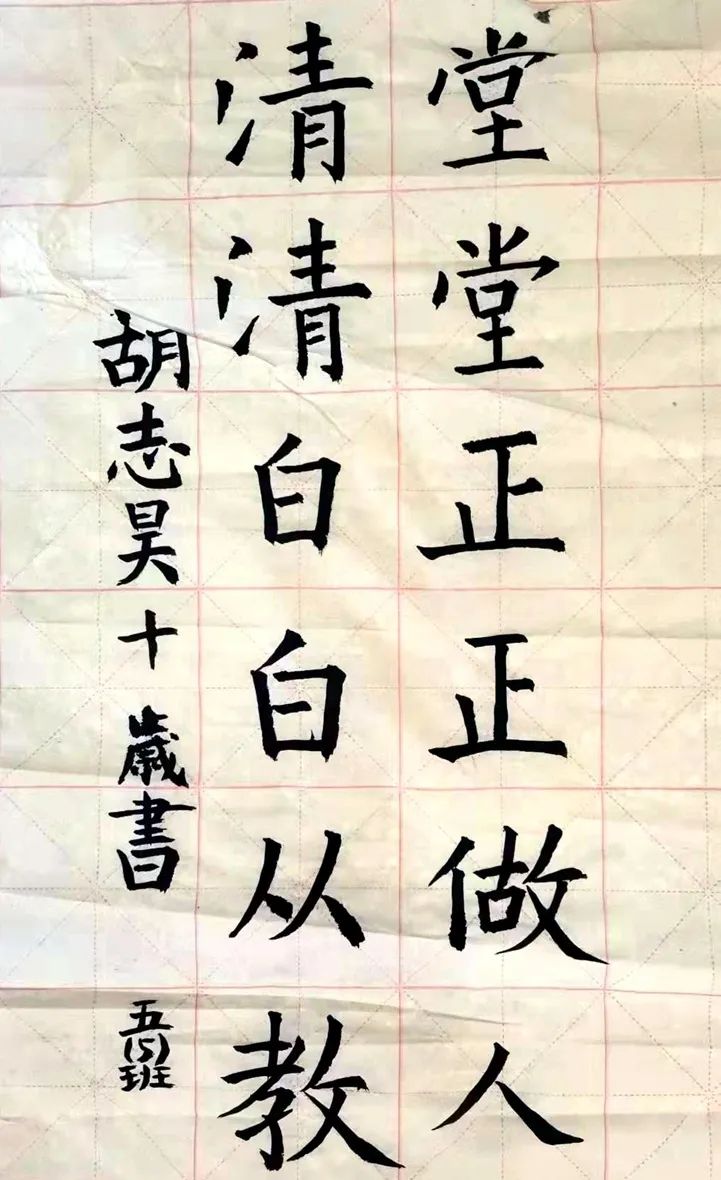 堂堂正正做人
清清白白从教
胡志昊十歲書
五(5)班